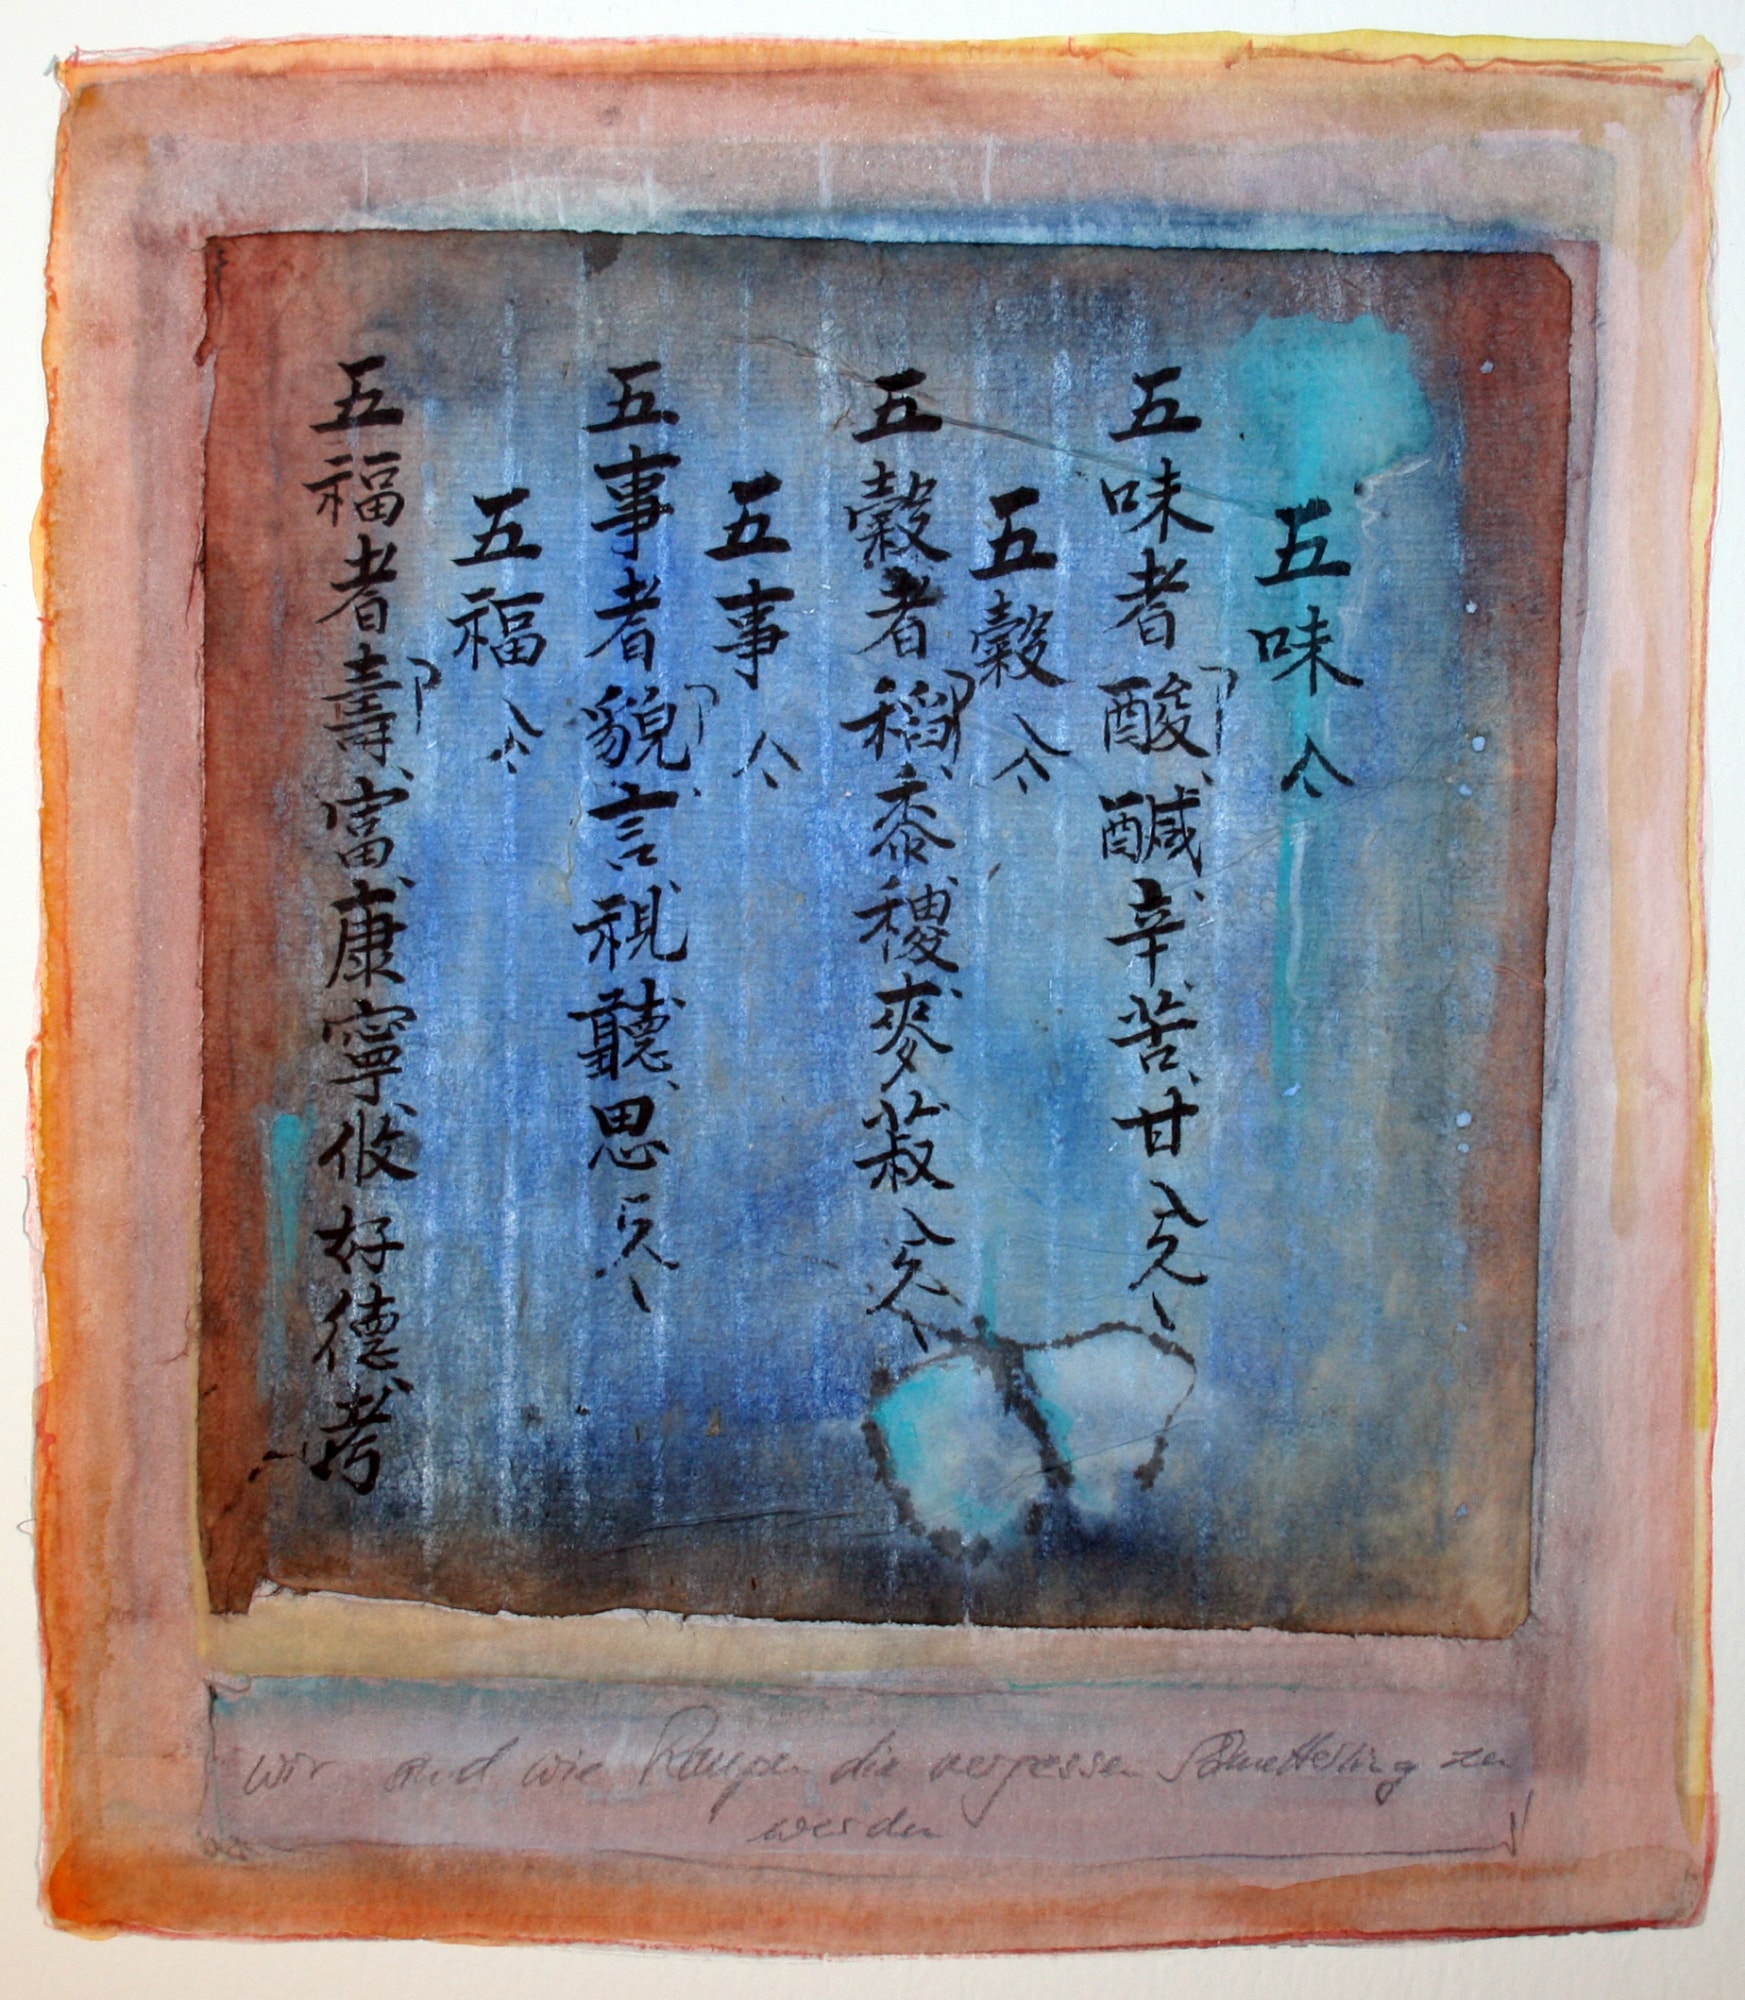 五味
五味者酸鹹辛苦甘
五穀
五穀者稻黍稷麥菽
五事
五事者貌言視聽思
五福
五福者壽富康寧攸好德考
wir sind wie Raupen die vergessen Schmetterling zu
werden